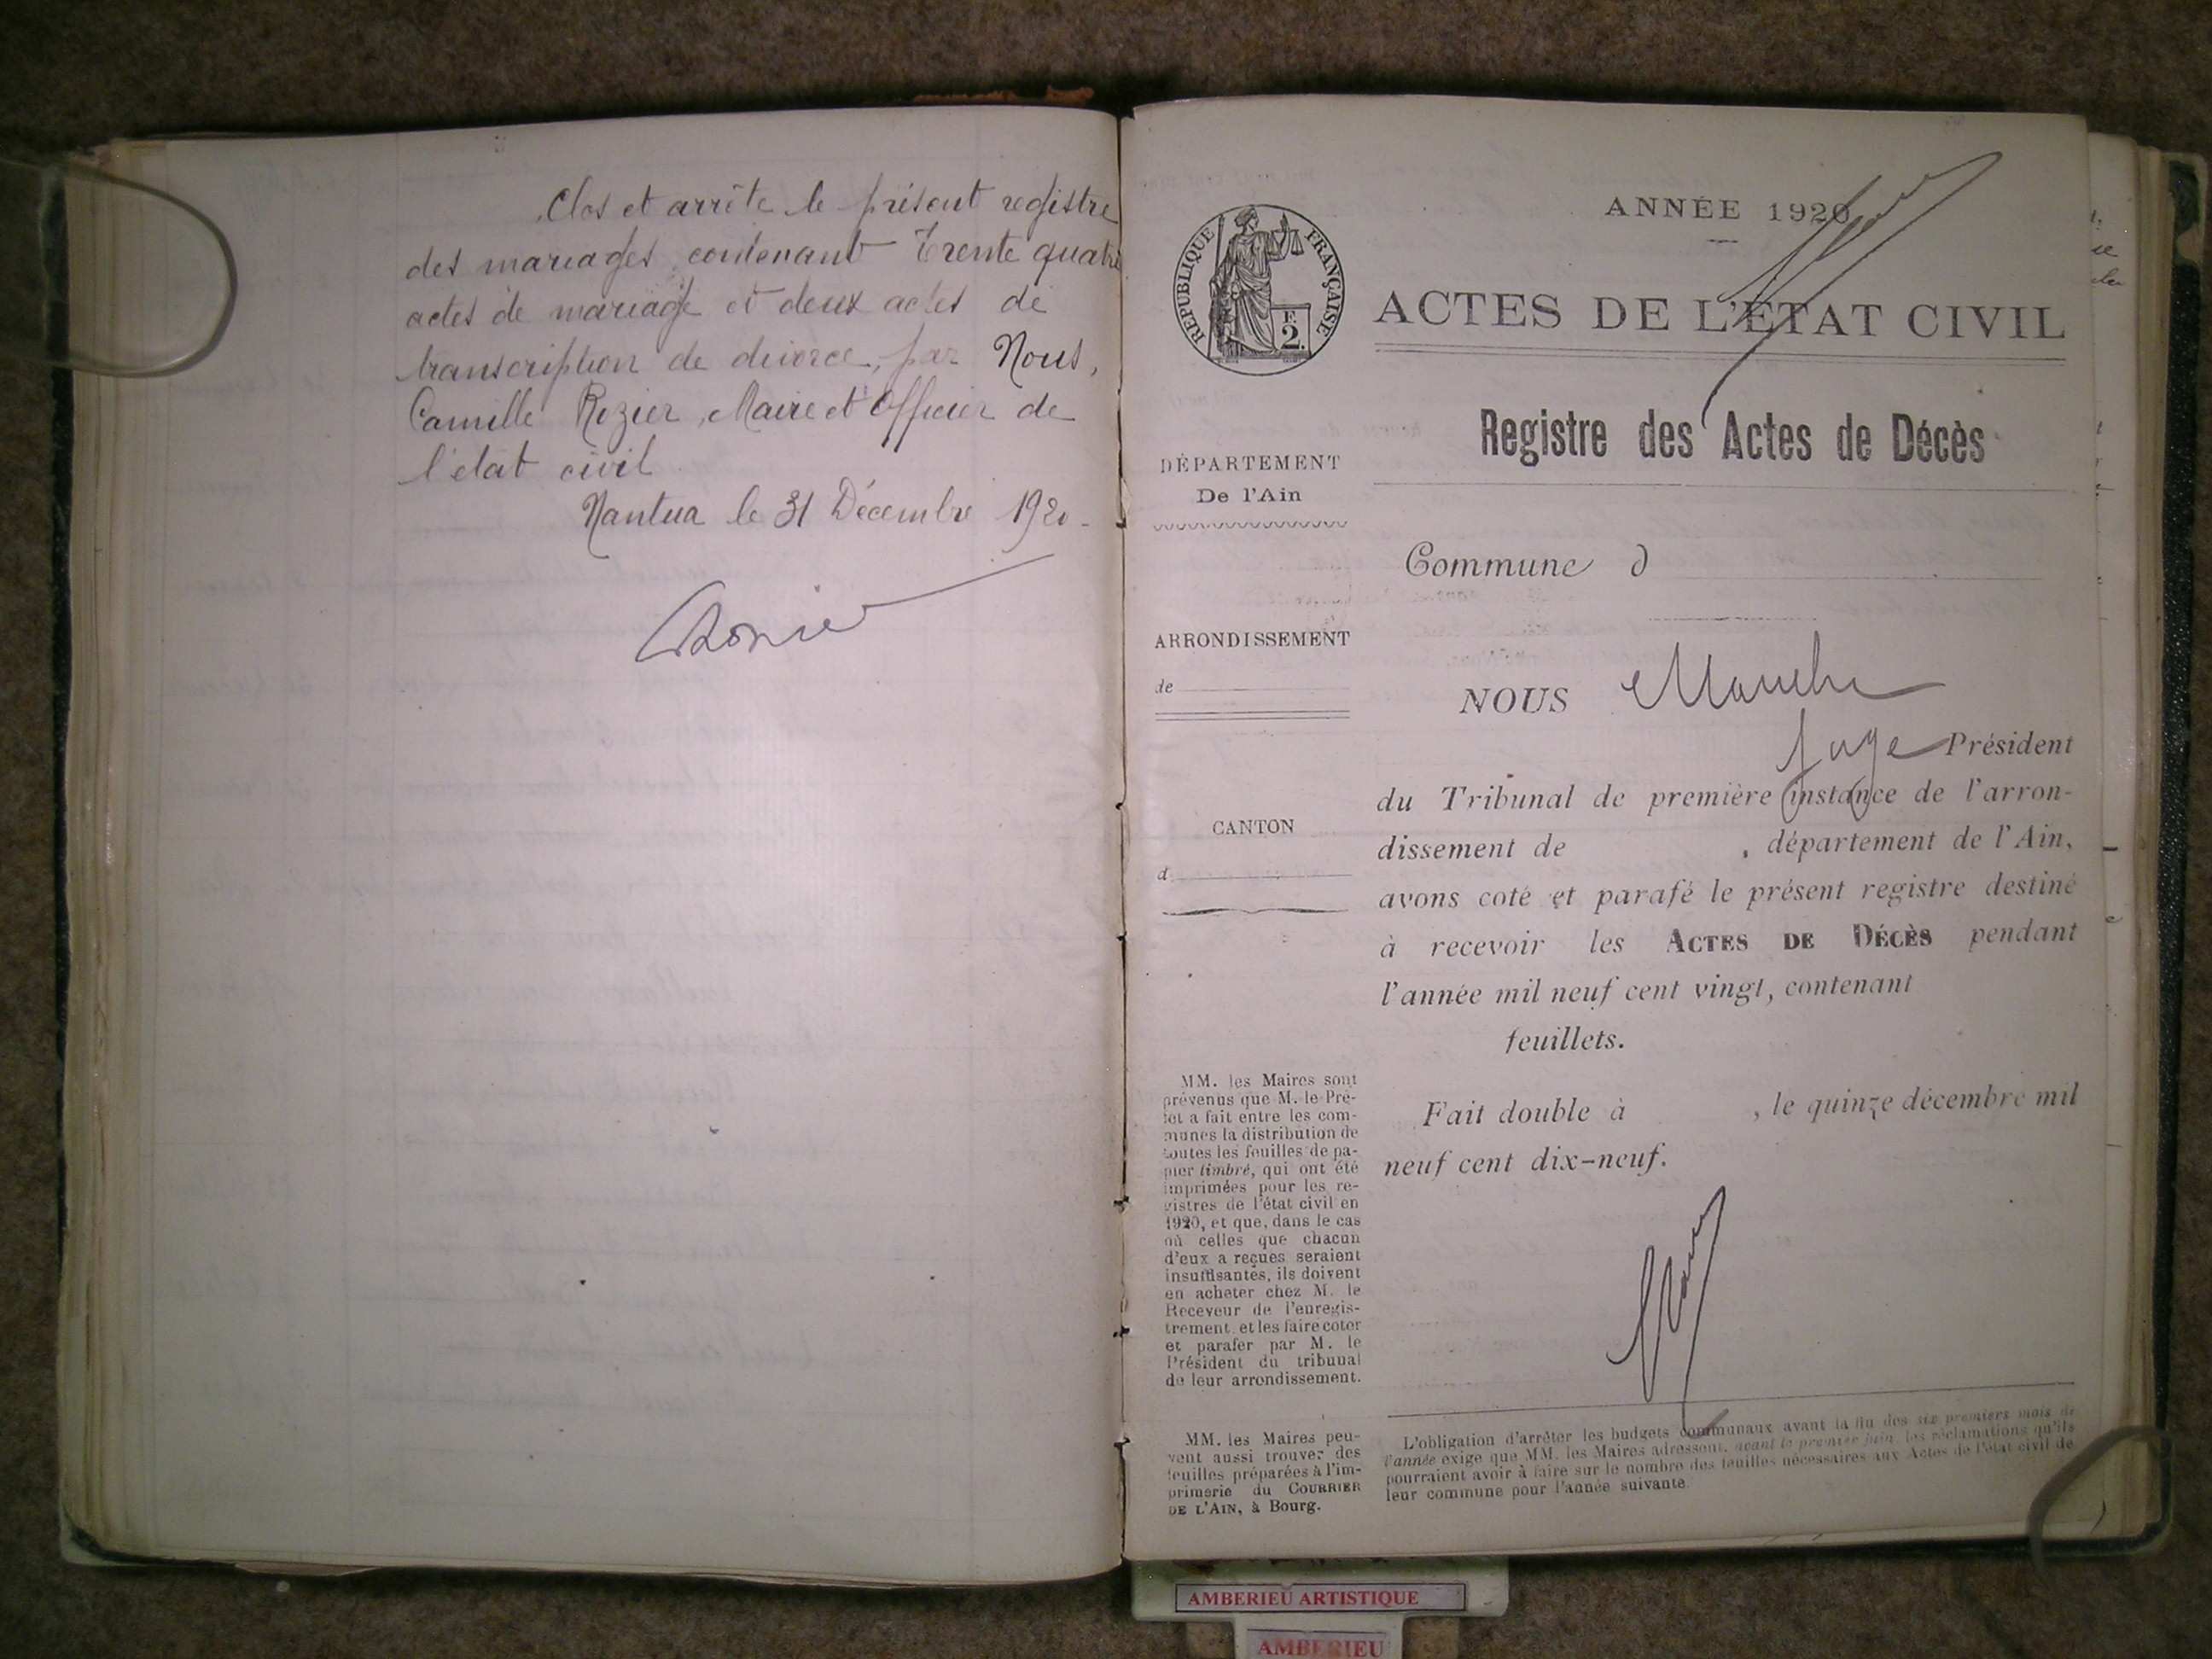 Clos et arrête le présent registre
des mariages, contenant Trente quatre
actes de mariage et deux actes de
transcription de divorce, par Nous,
Camille Rozier, Maire et Officier de
l'état civil
Nantua le 31 Décembre 1920.
ANNÉE 1920
RÉPUBLIQUE FRANÇAISE
E
2.
ACTES DE L'ÉTAT CIVIL
Registre des Actes de Décès
DÉPARTEMENT
De l'Ain
Commune d
ARRONDISSEMENT
de
NOUS
Juge Président
du Tribunal de première instance de l'arron-
dissement de , département de l'Ain,
avons coté et parafé le présent registre destiné
à recevoir les ACTES DE DÉCÈS pendant
l'année mil neuf cent vingt, contenant
feuillets.
CANTON
d
Fait double à , le quinze décembre mil
neuf cent dix-neuf.
MM. les Maires sont
prévenus que M. le Pré-
fet a fait entre les com-
munes la distribution de
toutes les feuilles de pa-
pier timbré, qui ont été
imprimées pour les re-
gistres de l'état civil en
1920, et que, dans le cas
où celles que chacun
d'eux a reçues seraient
insuffisantes, ils doivent
en acheter chez M. le
Receveur de l'enregis-
trement, et les faire coter
et parafer par M. le
Président du tribunal
de leur arrondissement.
MM. les Maires peu-
vent aussi trouver des
feuilles préparées à l'im-
primerie du COURRIER
DE L'AIN, à Bourg.
L'obligation d'arrêter les budgets communaux avant la fin des six premiers mois de
l'année exige que MM. les Maires adressent, avant le premier juin, les réclamations qu'ils
pourraient avoir à faire sur le nombre des feuilles nécessaires aux Actes de l'état civil de
leur commune pour l'année suivante.
AMBERIEU ARTISTIQUE
AMBERIEU